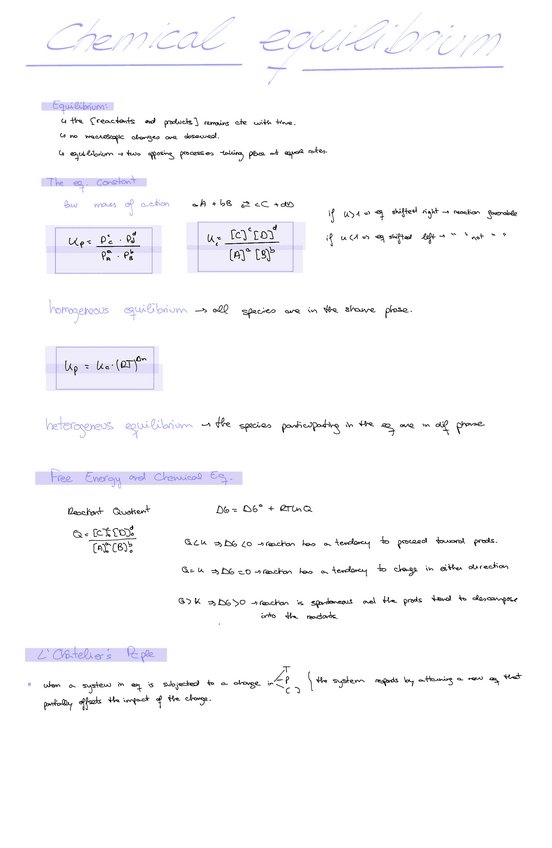 Chemical equilibrium
Equilibrium:
↳ the [reactants and products] remains cte with time.
↳ no macroscopic changes are observed.
↳ equilibrium → two opposing processes taking place at equal rates.
The eq. Constant
law mass of action aA + bB ⇄ cC + dD
if K>1 ⇒ eq shifted right → reaction favorable
if K<1 ⇒ eq shifted left → " " not " "
Kp = Pc^c · Pd^d / PA^a · PB^b
Kc = [C]^c [D]^d / [A]^a [B]^b
homogeneous equilibrium → all species are in the same phase.
Kp = Kc · (RT)^Δn
heterogeneous equilibrium → the species participating in the eq are in dif phase
Free Energy and Chemical Eq.
Reactant Quotient ΔG = ΔG° + RTlnQ
Q = [C]₀^c [D]₀^d / [A]₀^a [B]₀^b
Q<K ⇒ ΔG<0 → reaction has a tendency to proceed toward prods.
Q=K ⇒ ΔG=0 → reaction has a tendency to change in either direction
Q>K ⇒ ΔG>0 → reaction is spontaneous and the prods tend to descompose
into the reactants
L'Chatelier's
• when a system in eq is subjected to a change in T P [ ] } the system responds by attaining a new eq that
partially offsets the impact of the change.